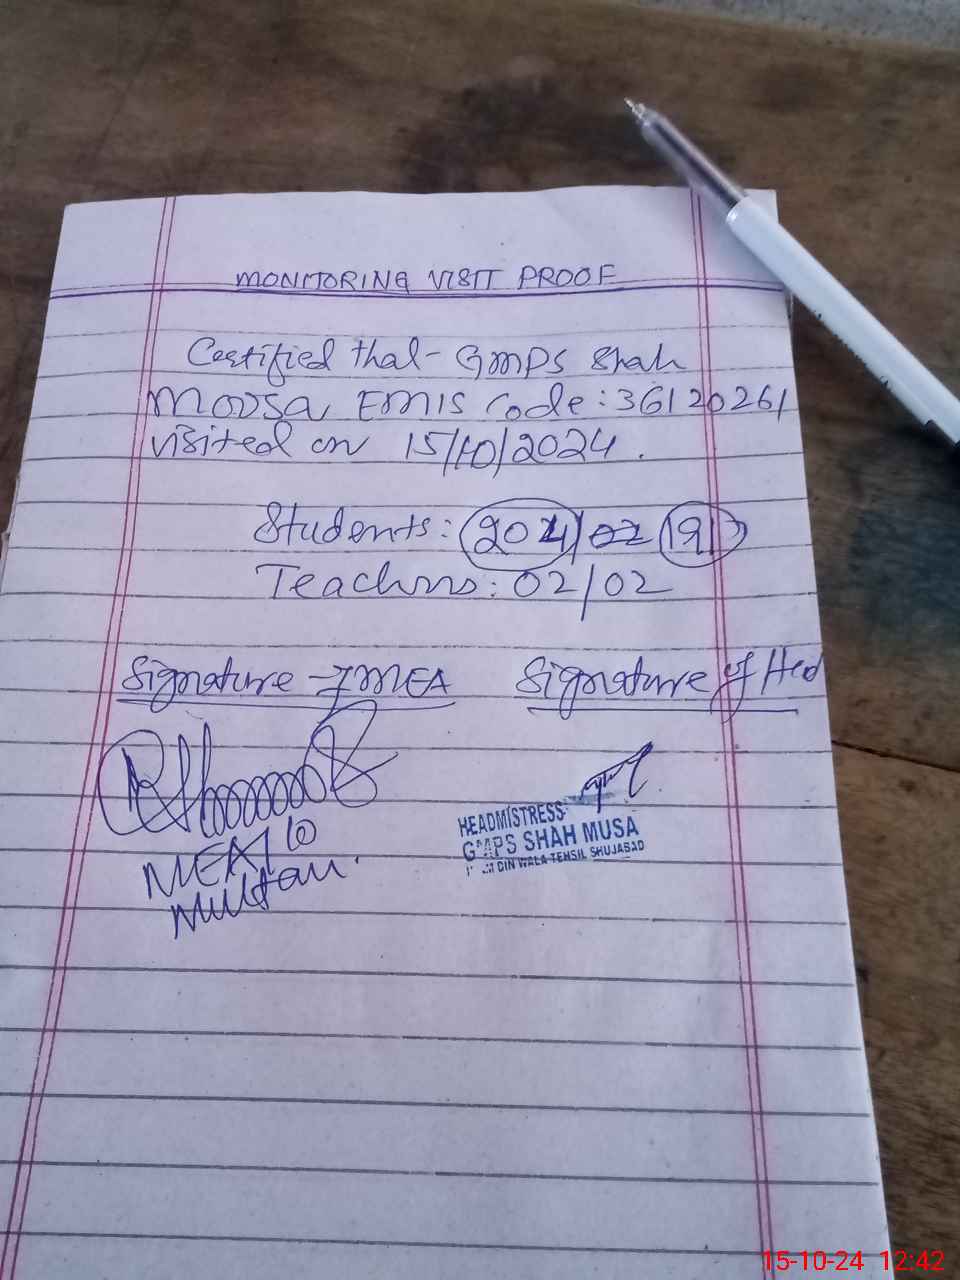 MONITORING VISIT PROOF
Certified that GMPS Shah
Moosa EMIS Code: 36120261
visited on 15/10/2024.
Students: 204/02 191
Teachers: 02/02
Signature MEA Signature of Hed
MEA 10
Multan.
HEADMISTRESS
GMPS SHAH MUSA
DIN WALA TEHSIL SHUJABAD
15-10-24 12:42